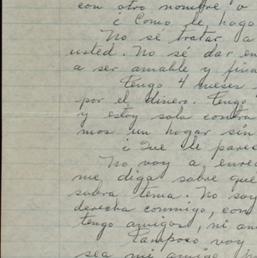 con otro nombre o
¿ Como le hago
No sé tratar a
usted. No sé dar en
a ser amable y fina
Tengo 4 meses
por el dinero. Tengo
y estoy sola contra
mos un hogar sin
¿ Que le pare
No voy a enre
me diga sobre que
sobra tema. No soy
derecha conmigo, con
tengo amigos, ni am
Tampoco voy
sea mi amigo